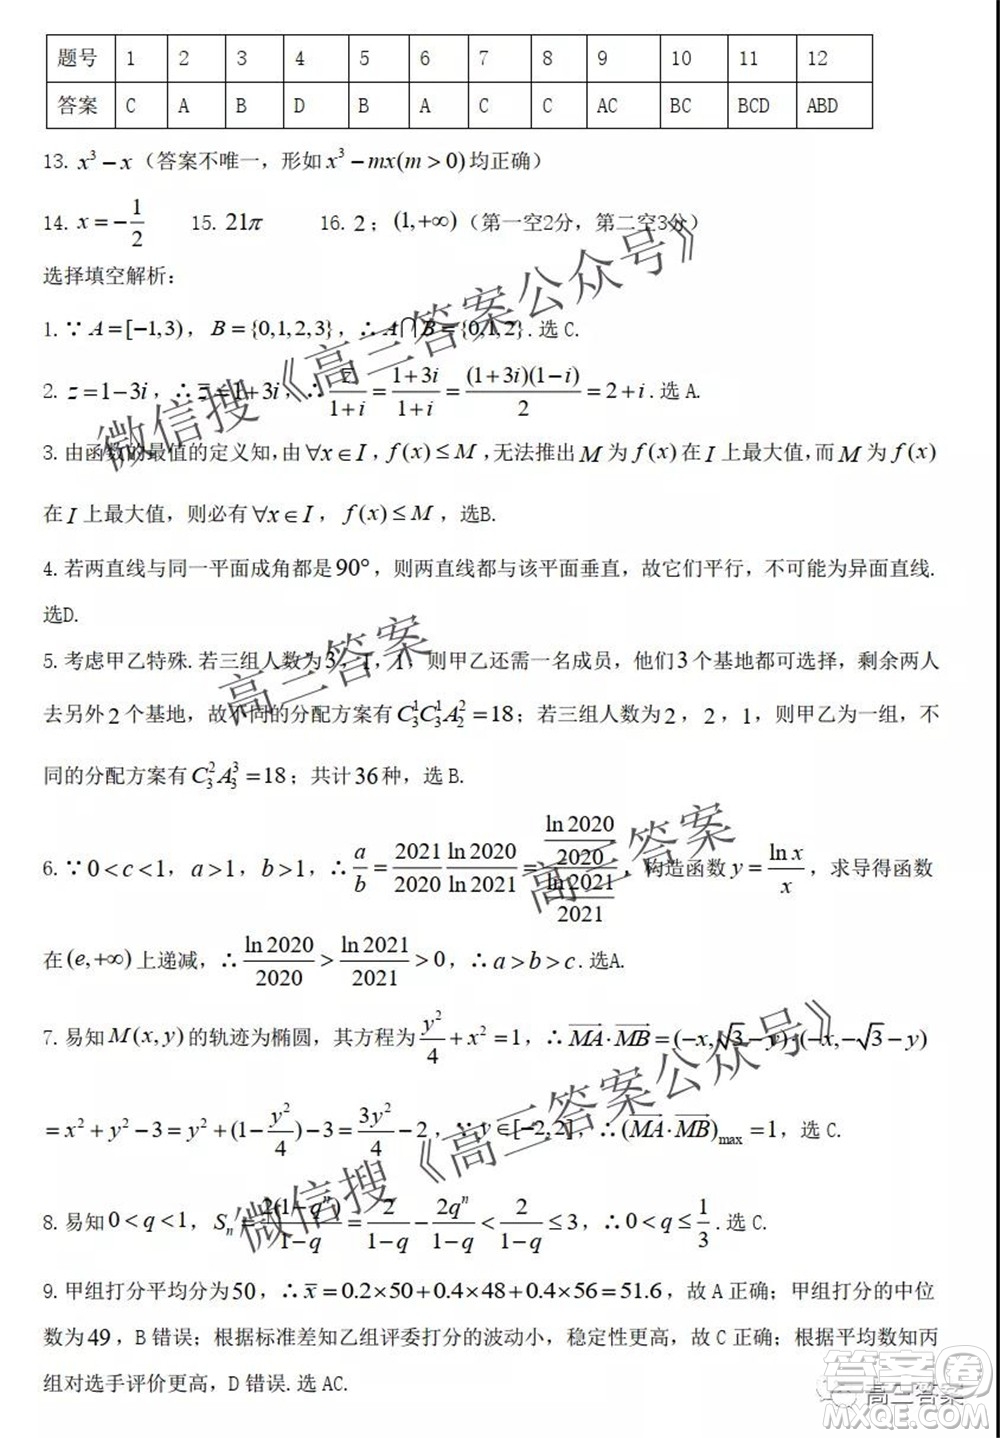 题号 1 2 3 4 5 6 7 8 9 10 11 12
答案 C A B D B A C C AC BC BCD ABD
13. x³－x（答案不唯一，形如 x³－mx(m＞0)均正确）
14. x＝－1/2 15. 21π 16. 2；(1,+∞)（第一空2分，第二空3分）
选择填空解析：
1. ∵ A＝[－1,3)，B＝{0,1,2,3}，∴ A∩B＝{0,1,2}．选 C.
2. z＝1－3i，∴ z̅＝1＋3i，∴ z̅/(1＋i)＝(1＋3i)/(1＋i)＝(1＋3i)(1－i)/2＝2＋i．选 A.
3. 由函数的最值的定义知，由∀x∈I，f(x)≤M，无法推出 M 为 f(x) 在 I 上最大值，而 M 为 f(x)
在 I 上最大值，则必有∀x∈I，f(x)≤M，选B.
4. 若两直线与同一平面成角都是90°，则两直线都与该平面垂直，故它们平行，不可能为异面直线.
选D.
5. 考虑甲乙特殊．若三组人数为3，1，1，则甲乙还需一名成员，他们3个基地都可选择，剩余两人
去另外2个基地，故不同的分配方案有C₃¹C₃¹A₂²＝18；若三组人数为2，2，1，则甲乙为一组，不
同的分配方案有C₃²A₃³＝18；共计36种，选 B.
6. ∵0＜c＜1，a＞1，b＞1，∴ a/b＝(2021/2020)(ln2020/ln2021)＝(ln2020/2020)/(ln2021/2021)，构造函数 y＝lnx/x，求导得函数
在(e,+∞)上递减，∴ ln2020/2020＞ln2021/2021＞0，∴ a＞b＞c．选A.
7. 易知 M(x,y) 的轨迹为椭圆，其方程为 y²/4＋x²＝1，∴ MA·MB＝(－x,√3－y)·(－x,－√3－y)
＝x²＋y²－3＝y²＋(1－y²/4)－3＝3y²/4－2，∵ y∈[－2,2]，∴(MA·MB)max＝1，选 C.
8. 易知0＜q＜1，Sₙ＝2(1－qⁿ)/(1－q)＝2/(1－q)－2qⁿ/(1－q)＜2/(1－q)≤3，∴0＜q≤1/3．选 C.
9. 甲组打分平均分为50，∴ x̅＝0.2×50＋0.4×48＋0.4×56＝51.6，故 A 正确；甲组打分的中位
数为49，B 错误；根据标准差知乙组评委打分的波动小，稳定性更高，故 C 正确；根据平均数知丙
组对选手评价更高，D 错误．选 AC.
微信搜《高三答案公众号》
高三答案
高三答案
微信搜《高三答案公众号》
答案卷
高三答案
MXQE.COM